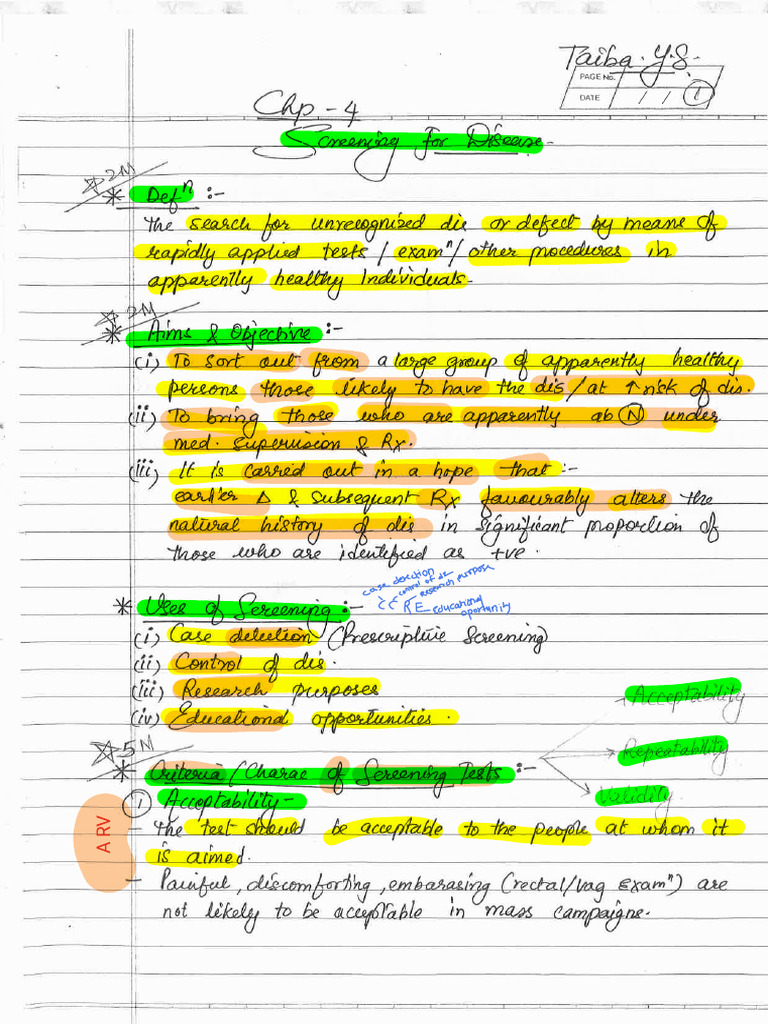 Taiba. Y.S.
PAGE No.
DATE / / 1
Chp - 4
Screening For Disease -
2M
* Defⁿ :-
The search for unrecognized dis or defect by means of
rapidly applied tests / examⁿ / other procedures in
apparently healthy Individuals.
2M
* Aims & Objective :-
(i) To sort out from a large group of apparently healthy
persons those likely to have the dis / at ↑ risk of dis.
(ii) To bring those who are apparently ab Ⓝ under
med. supervision & Rx.
(iii) It is carred out in a hope that :-
earlier Δ & subsequent Rx favourably alters the
natural history of dis in significant proportion of
those who are identified as +ve.
case detection
control of dis
Research purpose
* Uses of Screening :- CCRE educational
oportunity
(i) Case detection (Prescriptive Screening)
(ii) Control of dis.
(iii) Research purposes
(iv) Educational opportunities.
Acceptability
5M
Repeatability
* Criteria / Charac of Screening Tests :-
Validity
① Acceptability -
ARV
- The test should be acceptable to the people at whom it
is aimed.
- Painful, discomforting, embarasing (rectal/vag Examⁿ) are
not likely to be acceptable in mass campaigns.